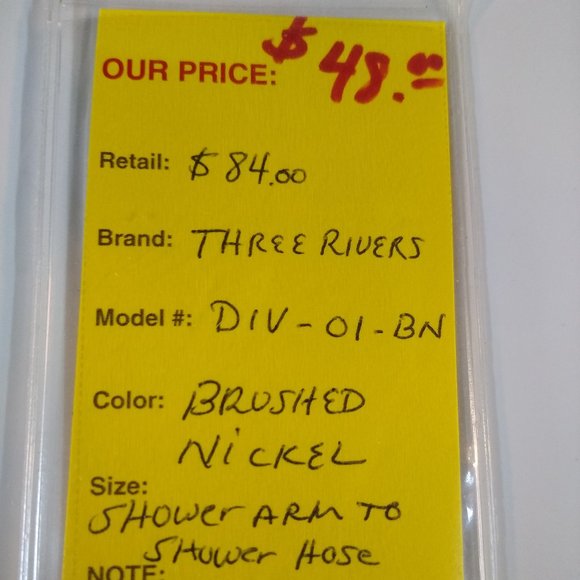 OUR PRICE: $48.00
Retail: $84.00
Brand: THREE RIVERS
Model #: DIV-01-BN
Color: BRUSHED
NiCKEL
Size:
SHOWer ARM TO
SHOWer HOSe
NOTE: